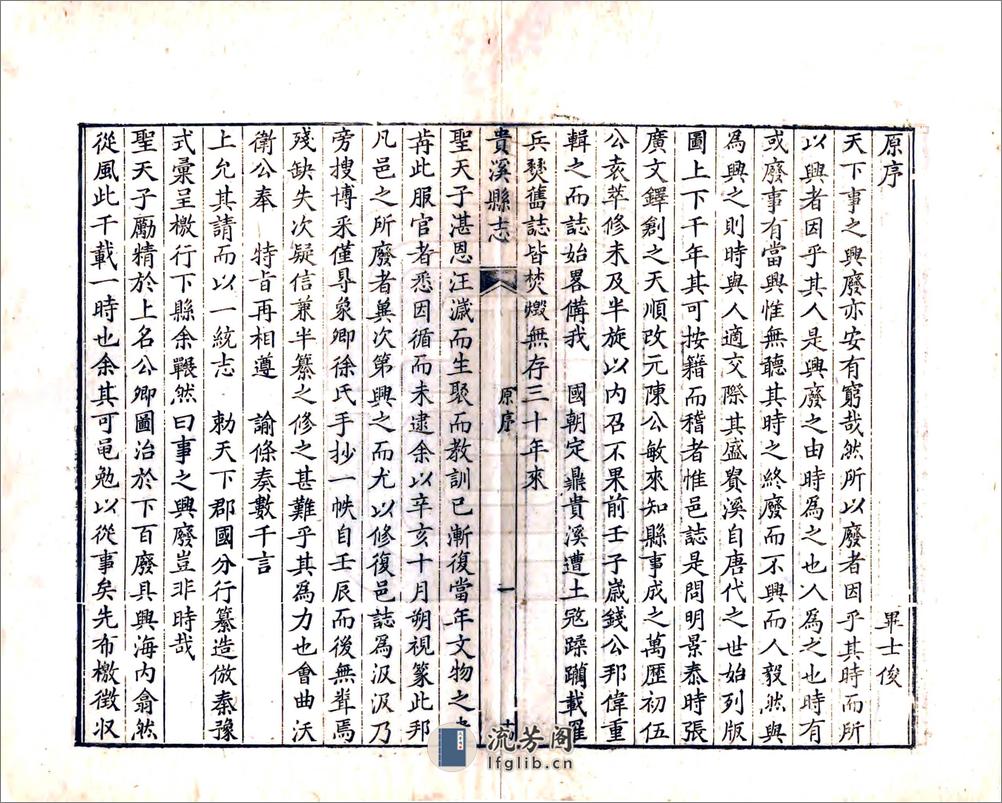 原序
畢士俊
天下事之興廢亦安有窮哉然所以廢者因乎其時而所
以興者因乎其人是興廢之由時爲之也人爲之也時有
或廢事有當興惟無聽其時之終廢而不興而人毅然與
爲興之則時與人適交際其盛貴溪自唐代之世始列版
圖上下千年其可按籍而稽者惟邑誌是問明景泰時張
廣文鐸創之天順改元陳公敏來知縣事成之萬歷初伍
公袁萃修未及半旋以內召不果前壬子歲錢公邦偉重
輯之而誌始畧備我 國朝定鼎貴溪遭土寇蹂躪載罹
兵燹舊誌皆焚燬無存三十年來
貴溪縣志
原序
一
聖天子湛恩汪濊而生聚而教訓已漸復當年文物之
前此服官者悉因循而未逮余以辛亥十月朔視篆此邦
凡邑之所廢者冀次第興之而尤以修復邑誌爲汲汲乃
旁搜博采僅㝵象卿徐氏手抄一帙自壬辰而後無聾焉
殘缺失次疑信兼半纂之修之甚難乎其爲力也會曲沃
衛公奉 特旨再相遵 諭條奏數千言
上允其請而以一統志 勅天下郡國分行纂造倣秦豫
式彙呈檄行下縣余囅然曰事之興廢豈非時哉
聖天子厲精於上名公卿圖治於下百廢具興海內翕然
從風此千載一時也余其可黽勉以從事矣先布檄徵収
流芳阁
lfglib.cn